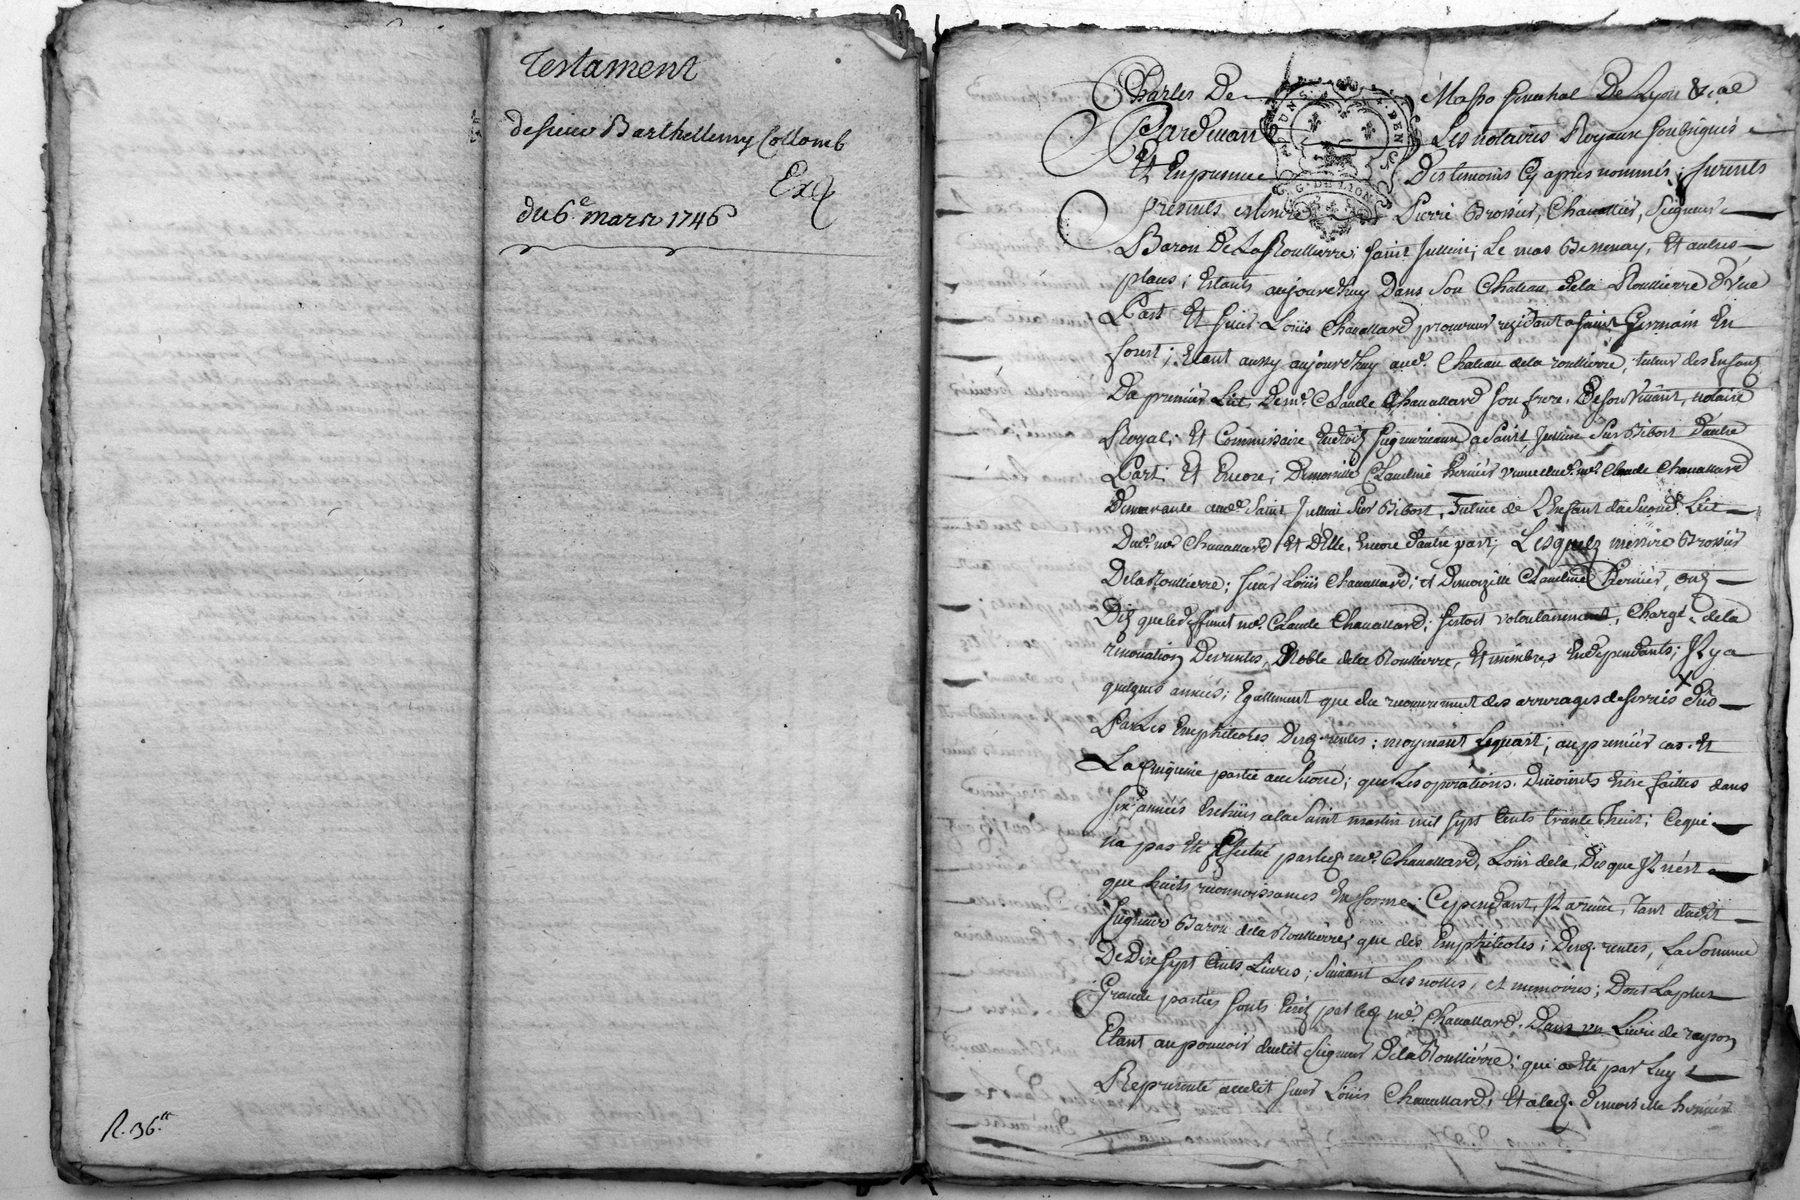 Testament
de sieur Barthellemy Collomb
Exp
du 6e mars 1746
R. 36tt
Charles De Masso senechal De Lyon
Pardevant Les notaires Royaux soubsignés
Et En presence Des temoins Cy apres nommés; furents
presents Messire Pierre Brossier, Chevallier, Seigneur
Baron De La Roullierre, saint Jullien, Le mas Et autres
places; Estants aujourdhuy Dans son Chateau dela Roullierre d'une
Part Et sieur Loüis Chavallard procureur rezidant a saint Germain En
forest; Etant aussy aujourdhuy aud. Chateau dela roullierre, tuteur des Enfants
Du premier Lict De me. Claude Chavallard son frere, De son Vivant, notaire
Royal, Et Commissaire En droits seigneuriaux a Saint Jullien Sur Bibost D'autre
Part; Et Encore; Demoiselle Claudine Vernier veuve dud. me. Claude Chavallard
Demeurante aud. Saint Jullien Sur Bibost, Tutrice de L'Enfant du second Lict
Dud. me. Chavallard Et D'Elle, Encore d'autre part; Lesquels messire Brossier
Dela Roullierre; sieur Loüis Chavallard; et Demoizelle Claudine Vernier, onts
Dit que led. deffunct me. Claude Chavallard, s'estoit volontairement, Chargé dela
renovation Des rentes, Noble dela Roullierre, Et membres En dependants; Il y a
quelques années; Egallement que du recouvrement des arrerages de servis Dus
Par Les Emphiteotes Desd. rentes; moyenant Le quart; au premier cas. Et
La Cinquieme partie au Second; que Les operations. Devoients Estre faittes dans
six années Echües a la Saint martin mil sept Cents trante Huit; Ce qui
n'a pas Eté Effectué par led. me. Chavallard, Loin de la, Des que Il n'est
que huits reconnoissances En forme; Cependant, Il a reçue, Tant dudit
Seigneur Baron dela Roullierre, que des Emphiteotes; Desd. rentes, La Somme
De Dix sept Cents Livres; Suivant Les nottes, et memoires; Dont La plus
Grande parties sonts Ecrits par led. me. Chavallard. Dans un Livre de rayson
Etant au pouvoir dudit Seigneur Dela Roullierre; qui a Eté par Luy
Representé audit sieur Loüis Chavallard, Et a lad. demoiselle Vernier